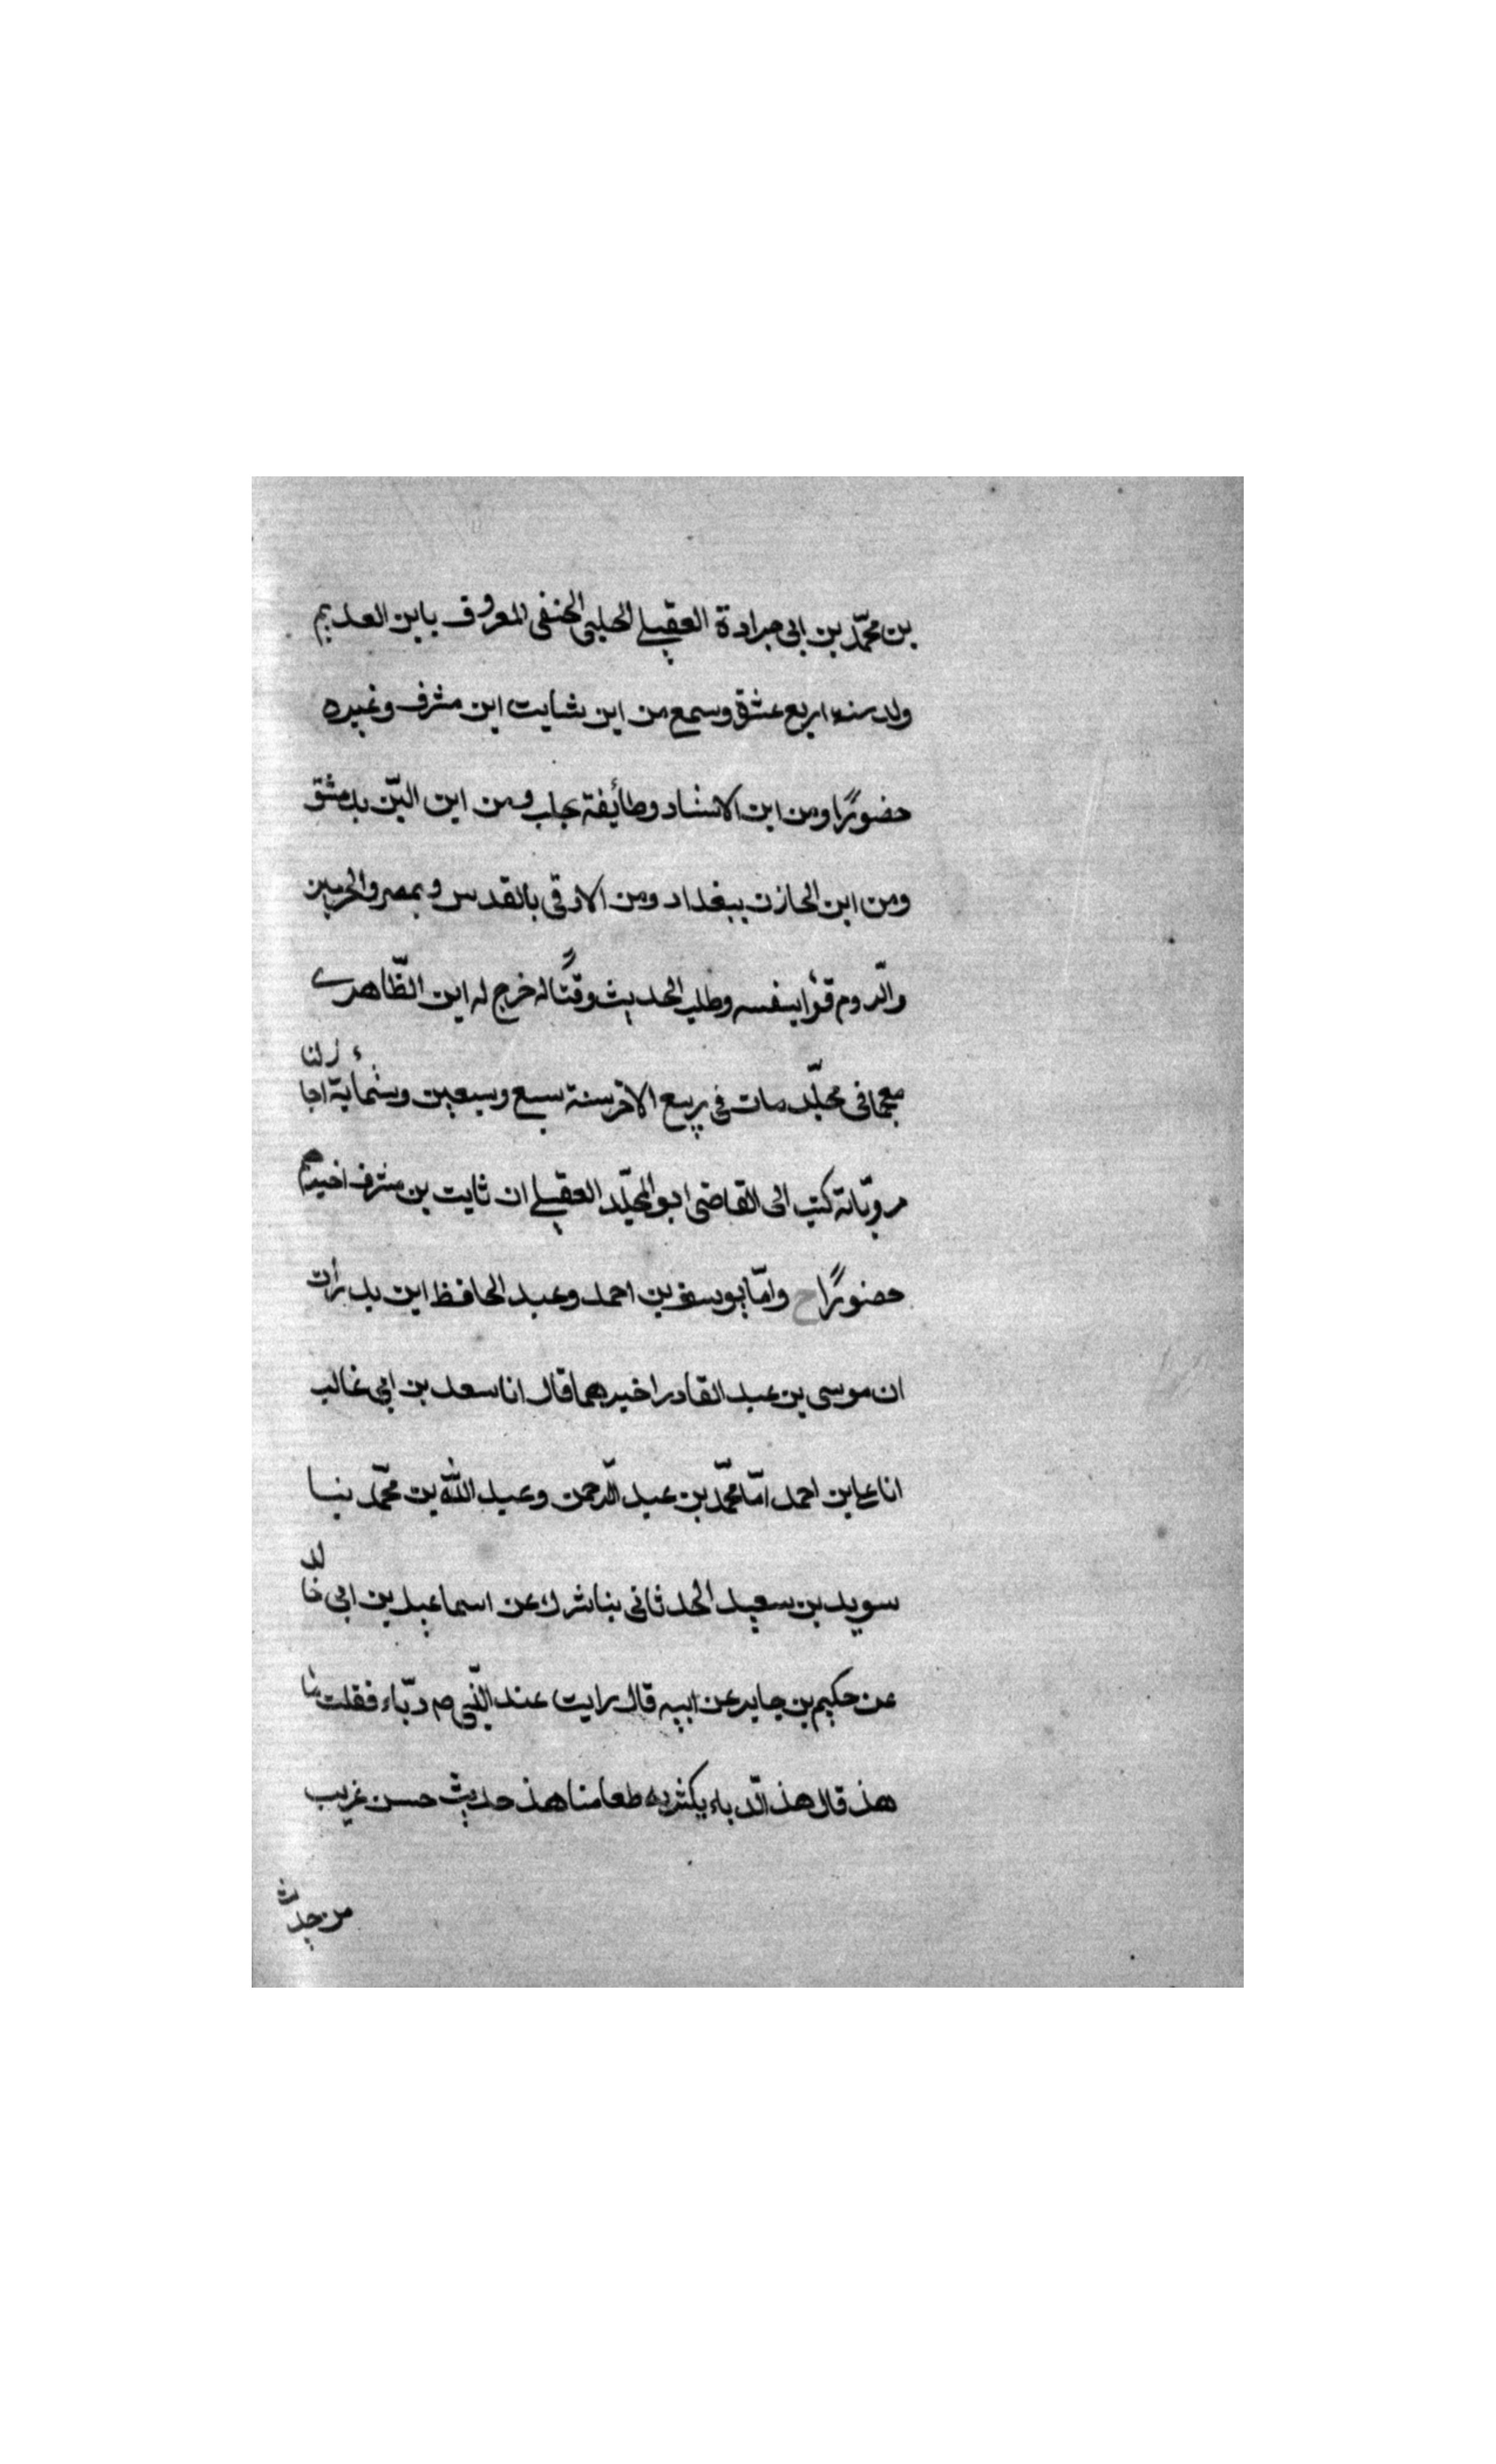 بن محمّد بن ابى جرادة العقيلے الحلبى الحنفى المعروف بابن العديم
ولد سنة اربع عشق وسمع من ابن ثابت ابن مشرف وغيره
حضورًا ومن ابن الاستاد وطائفة بحلب ومن ابن البّن بدمشق
ومن ابن الخازن ببغداد ومن الاوقى بالقدس و بمصر والحرمين
والّروم قرأ بنفسه وطلب الحديث وقتًا له خرج له ابن الظّاهرے
معجما فى مجلّد مات فى ربيع الاخر سنة سبع وسبعين وستمأية اجازلنا
مرويّاته كتب الى القاضى ابو المجلّد العقيلے ان ثابت بن مشرف اخبرهم
حضورًا ح وامّا يوسف بن احمد وعبد الحافظ ابن بدران
ان موسى بن عبد القادر اخبرهما قال انا سعد بن ابى غالب
انا على بن احمد امّا محمّد بن عبد الّرحمن وعبد اللّه بن محمّد بنسا
سويد بن سعيد الحدثانى بنا شرك عن اسماعيل بن ابى خالد
عن حكيم بن جابر عن ابيه قال رايت عند النّبى ص دبّاء فقلت ما
هذ قال هذ الّدباء يكثر به طعامنا هذ حديث حسن غريب
من حدث